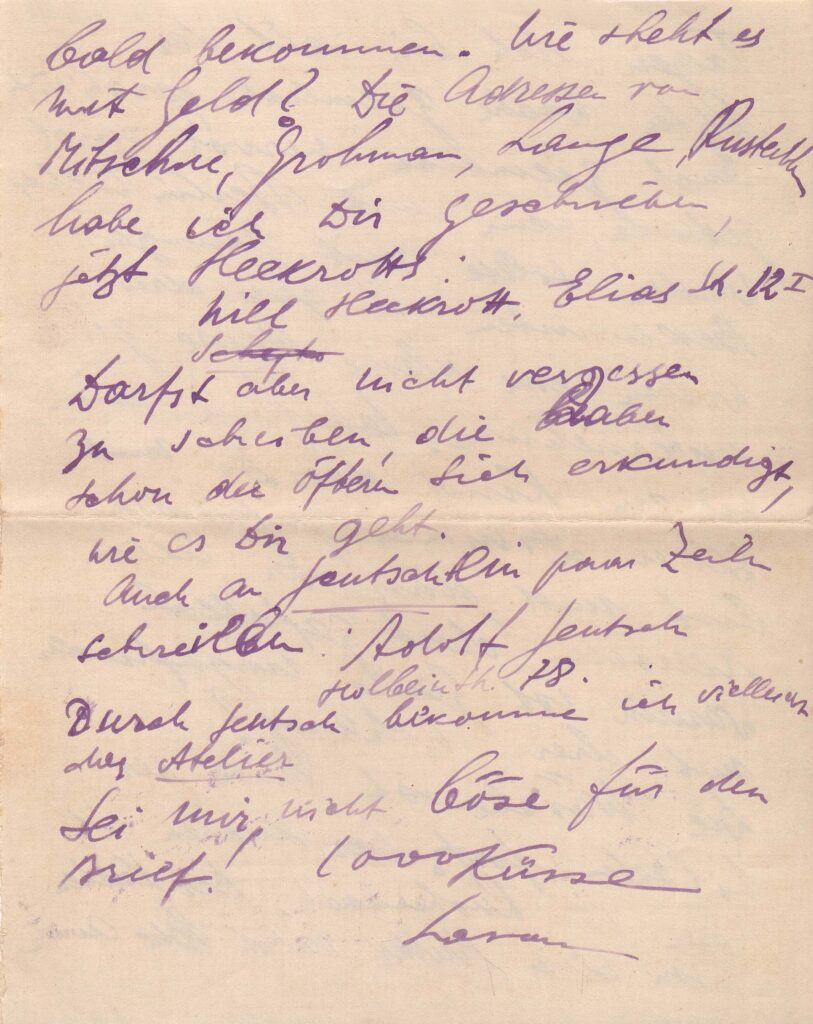 bald bekommen. Wie steht es
mit Geld? Die Adressen von
Mitschke, Grohman, Lange,
habe ich Dir geschrieben,
jetzt Heckrotts:
Will Heckrott, Elias Str. 12 I
Darfst aber nicht vergessen
zu schreiben, die haben
schon der öftern sich erkundigt,
wie es Dir geht.
Auch an Jentschklin paar Zeiln
schreiben: Adolf Jentsch
Holbeinstr. 78.
Durch Jentsch bekomme ich vielleicht
das Atelier
Sei mir, nicht, böse für den
Brief! 1000 Küsse